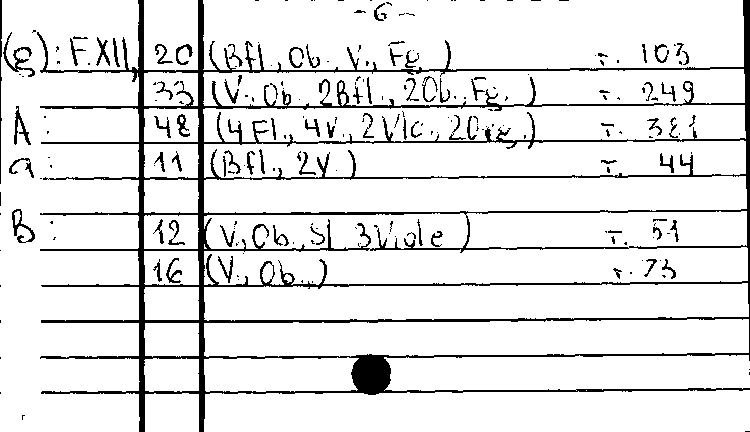 - 6 -
(g): F.XII, 20 (Bfl., Ob., V., Fg.) т. 103
33 (V., Ob., 2Bfl., 2Ob., Fg.) т. 249
A: 48 (4Fl., 4V., 2Vlc., 2Org.) т. 381
a: 11 (Bfl., 2V.) т. 44
B: 12 (V., Ob., Sl. 3Viole) т. 51
16 (V., Ob.) т. 73